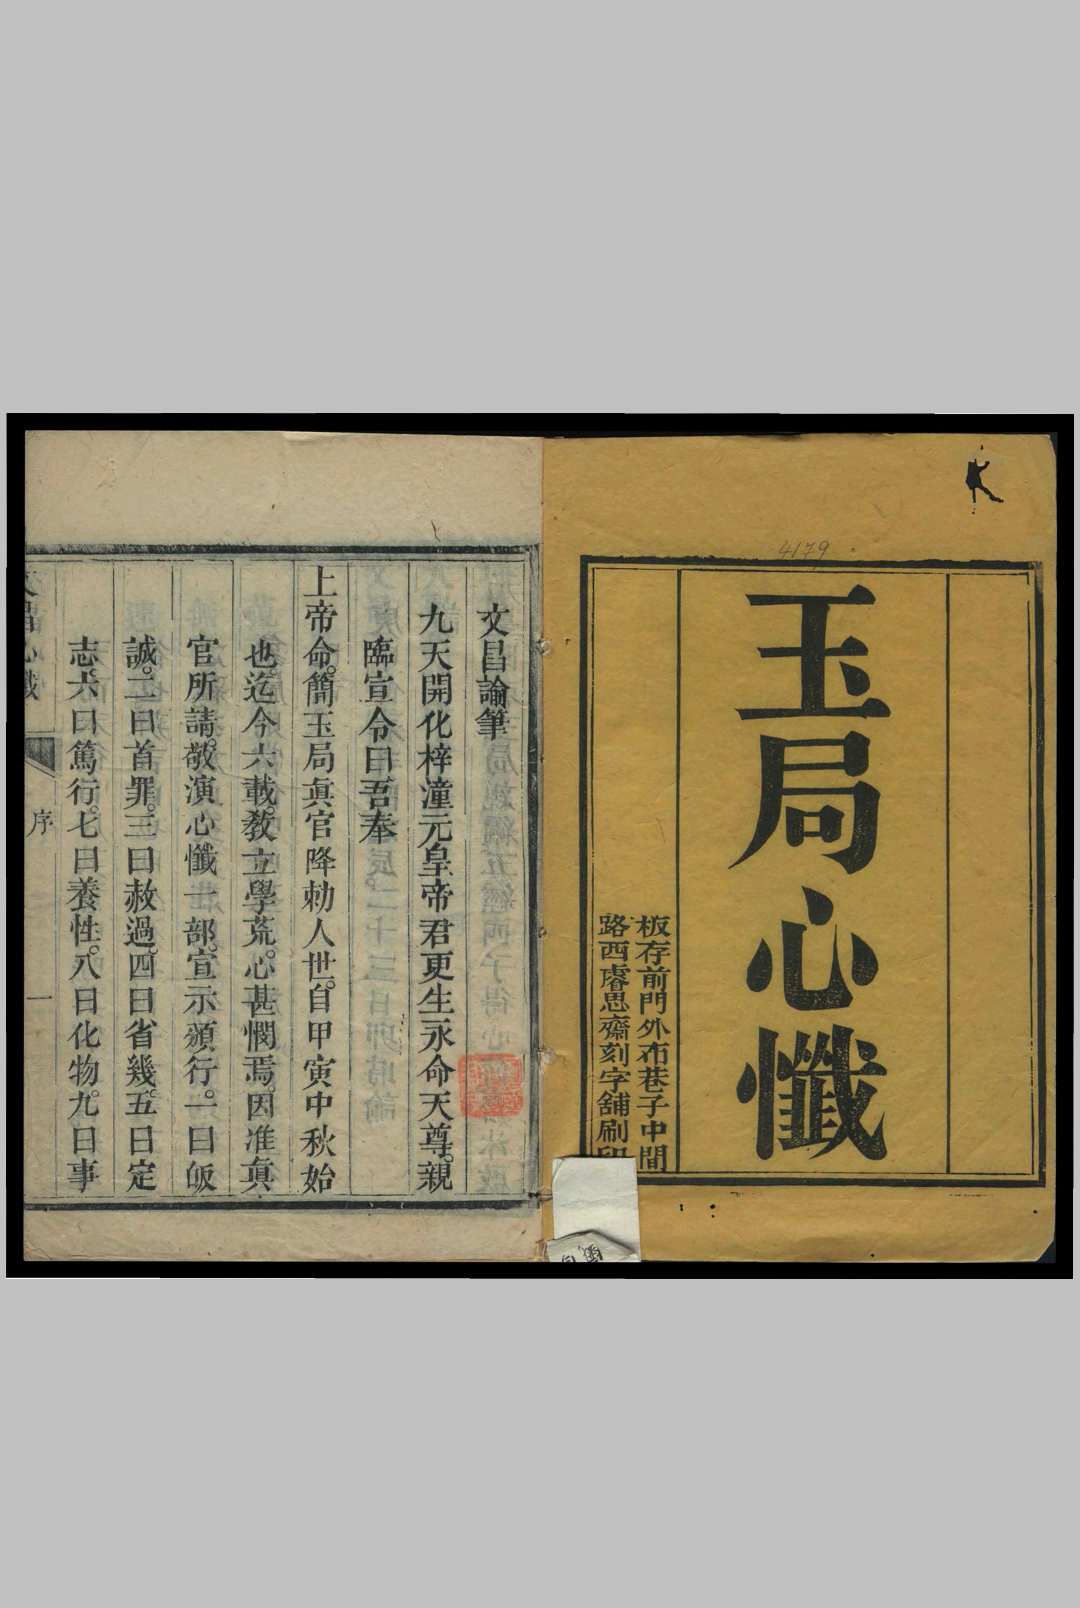 4179
玉局心懺
板存前門外布巷子中間
路西睿思齋刻字舖刷印
文昌諭筆
九天開化梓潼元皇帝君更生永命天尊。親
臨宣令曰吾奉
上帝命。簡玉局眞官降勅人世。自甲寅中秋始
也。迄今六載。敎立學荒。心甚憫焉。因准眞
官所請。敬演心懺一部。宣示頒行。一曰皈
誠。二曰首罪。三曰赦過。四曰省幾。五曰定
志。六曰篤行。七曰養性。八曰化物。九曰事
文昌心懺
序
一